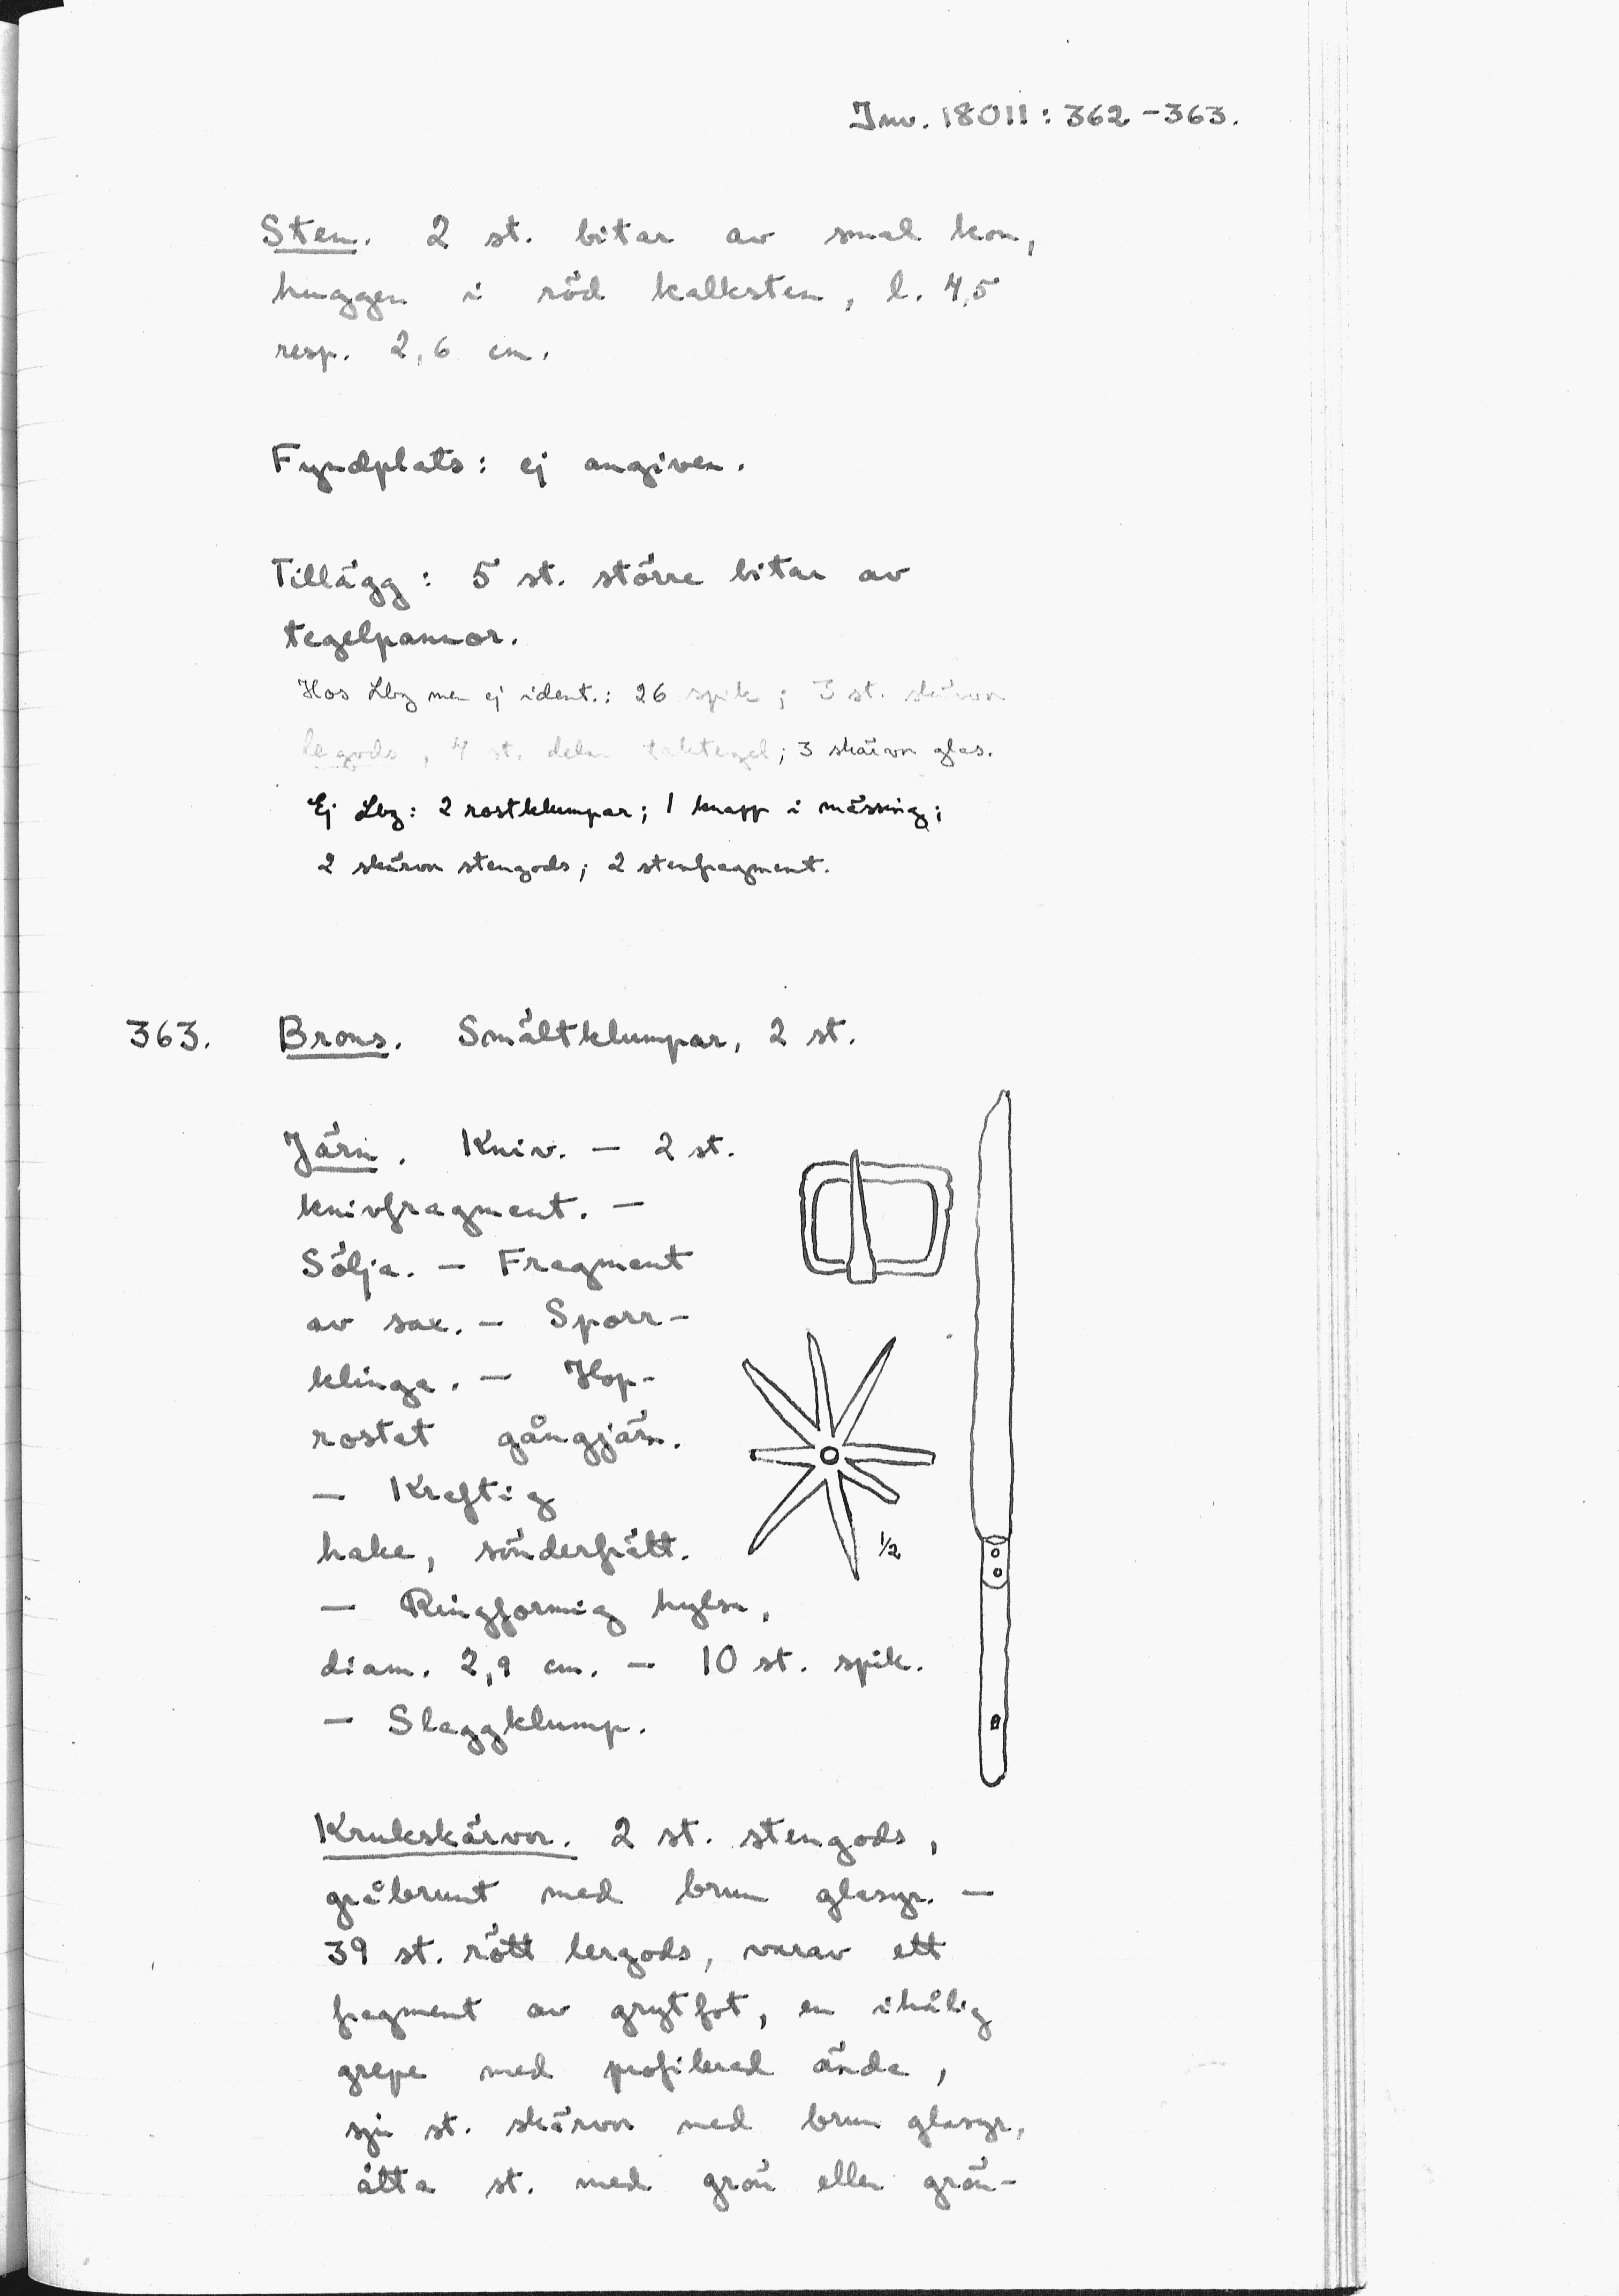 Inv. 18011: 362-363.
Sten. 2 st. bitar av smal kon,
huggen i röd kalksten, l. 4,5
resp. 2,6 cm.
Fyndplats: ej angiven.
Tillägg: 5 st. större bitar av
tegelpannor.
Hos Lbz men ej ident.: 26 spik; 3 st. skärvor
lergods, 4 st. delar taktegel; 3 skärvor glas.
Ej Lbz: 2 rostklumpar; 1 knapp i mässing;
2 skärvor stengods; 2 stenfragment.
363. Brons. Smältklumpar, 2 st.
Järn. Kniv. — 2 st.
knivfragment. —
Sölja. — Fragment
av sax. — Sporr-
klinga. — Hop-
rostat gångjärn.
— Kraftig
hake, sönderfrätt.
1/2
— Ringformig hylsa,
diam. 2,9 cm. — 10 st. spik.
— Slaggklump.
Krukskärvor. 2 st. stengods,
gråbrunt med brun glasyr. —
39 st. rött lergods, varav ett
fragment av grytfot, en ihålig
grepe med profilerad ände,
sju st. skärvor med brun glasyr,
åtta st. med grön eller grön-